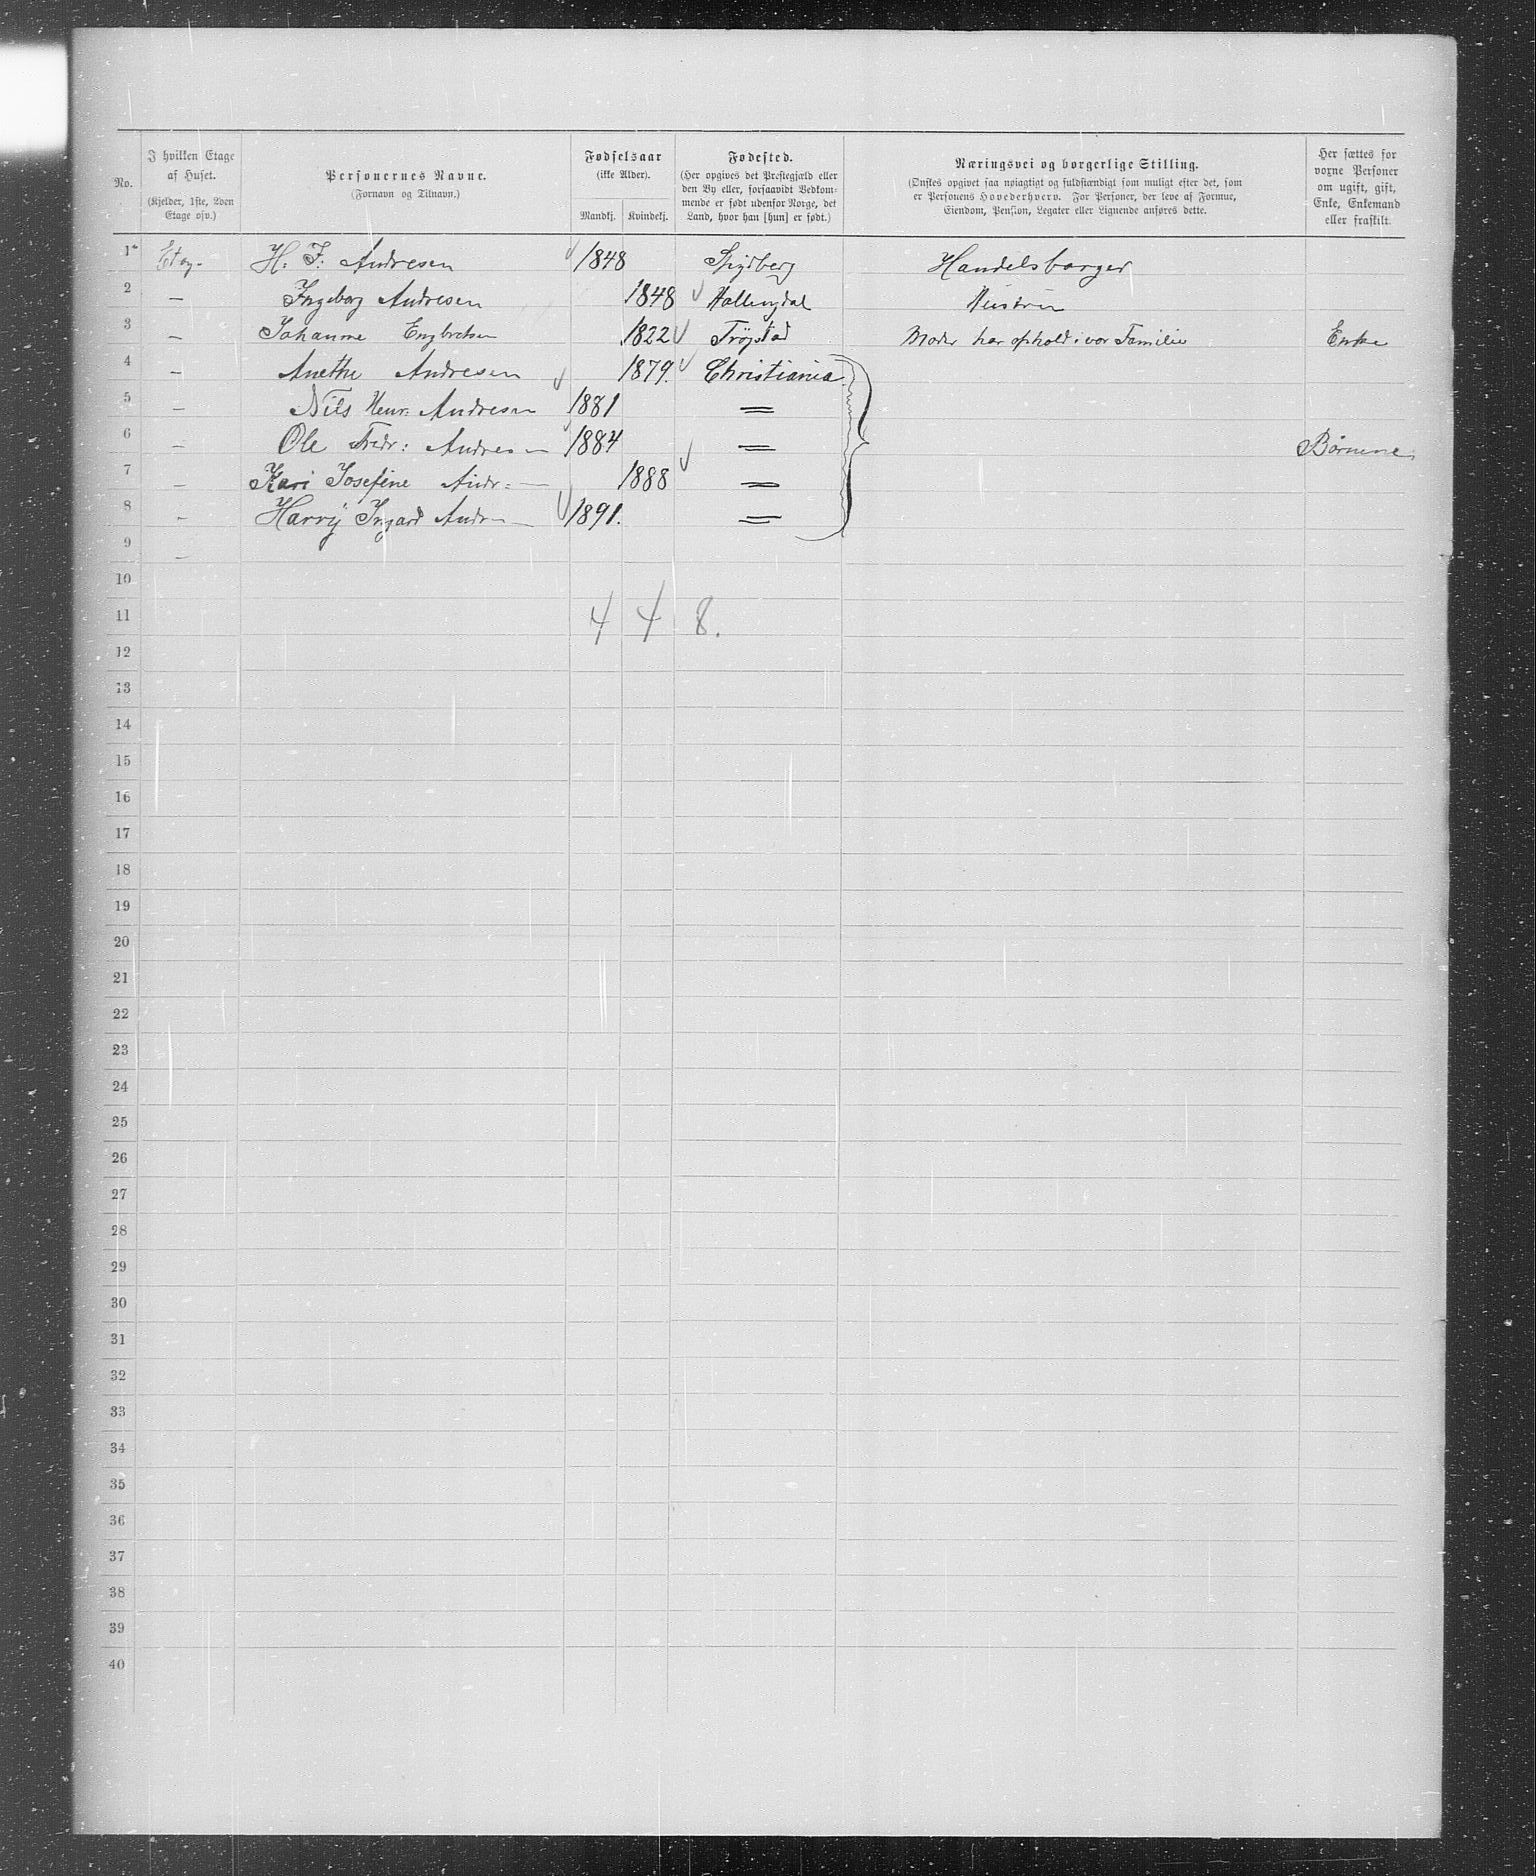 No.
I hvilken Etage af Huset.
(Kjelder, 1ste, 2den Etage osv.)
Personernes Navne.
(Fornavn og Tilnavn.)
Fødselsaar
(ikke Alder).
Mandkj. Kvindekj.
Fødested.
(Her opgives det Præstegjæld eller den By eller, forsaavidt Vedkommende er født udenfor Norge, det Land, hvor han [hun] er født.)
Næringsvei og borgerlige Stilling.
(Ønskes opgivet saa nøiagtigt og fuldstændigt som muligt efter det, som er Personens Hovederhverv. For Personer, der leve af Formue, Eiendom, Pension, Legater eller Lignende anføres dette.
Her sættes for voxne Personer om ugift, gift, Enke, Enkemand eller fraskilt.
1 Etag. H. F. Andresen 1848 Spydberg Handelsborger
2 — Ingeborg Andresen 1848 Hallingdal Hustru
3 — Johanne Engbretsen 1822 Trögstad Moder har ophold i vor Familie Enke
4 — Anethe Andresen 1879. Christiania
5 — Nils Henr: Andresen 1881 〃
6 — Ole Fredr: Andresen 1884 〃 Børnene
7 — Kari Josefine Andr: — 1888 〃
8 — Harry Ingard Andr — 1891. 〃
9 —
10
11 4 4 8.
12
13
14
15
16
17
18
19
20
21
22
23
24
25
26
27
28
29
30
31
32
33
34
35
36
37
38
39
40